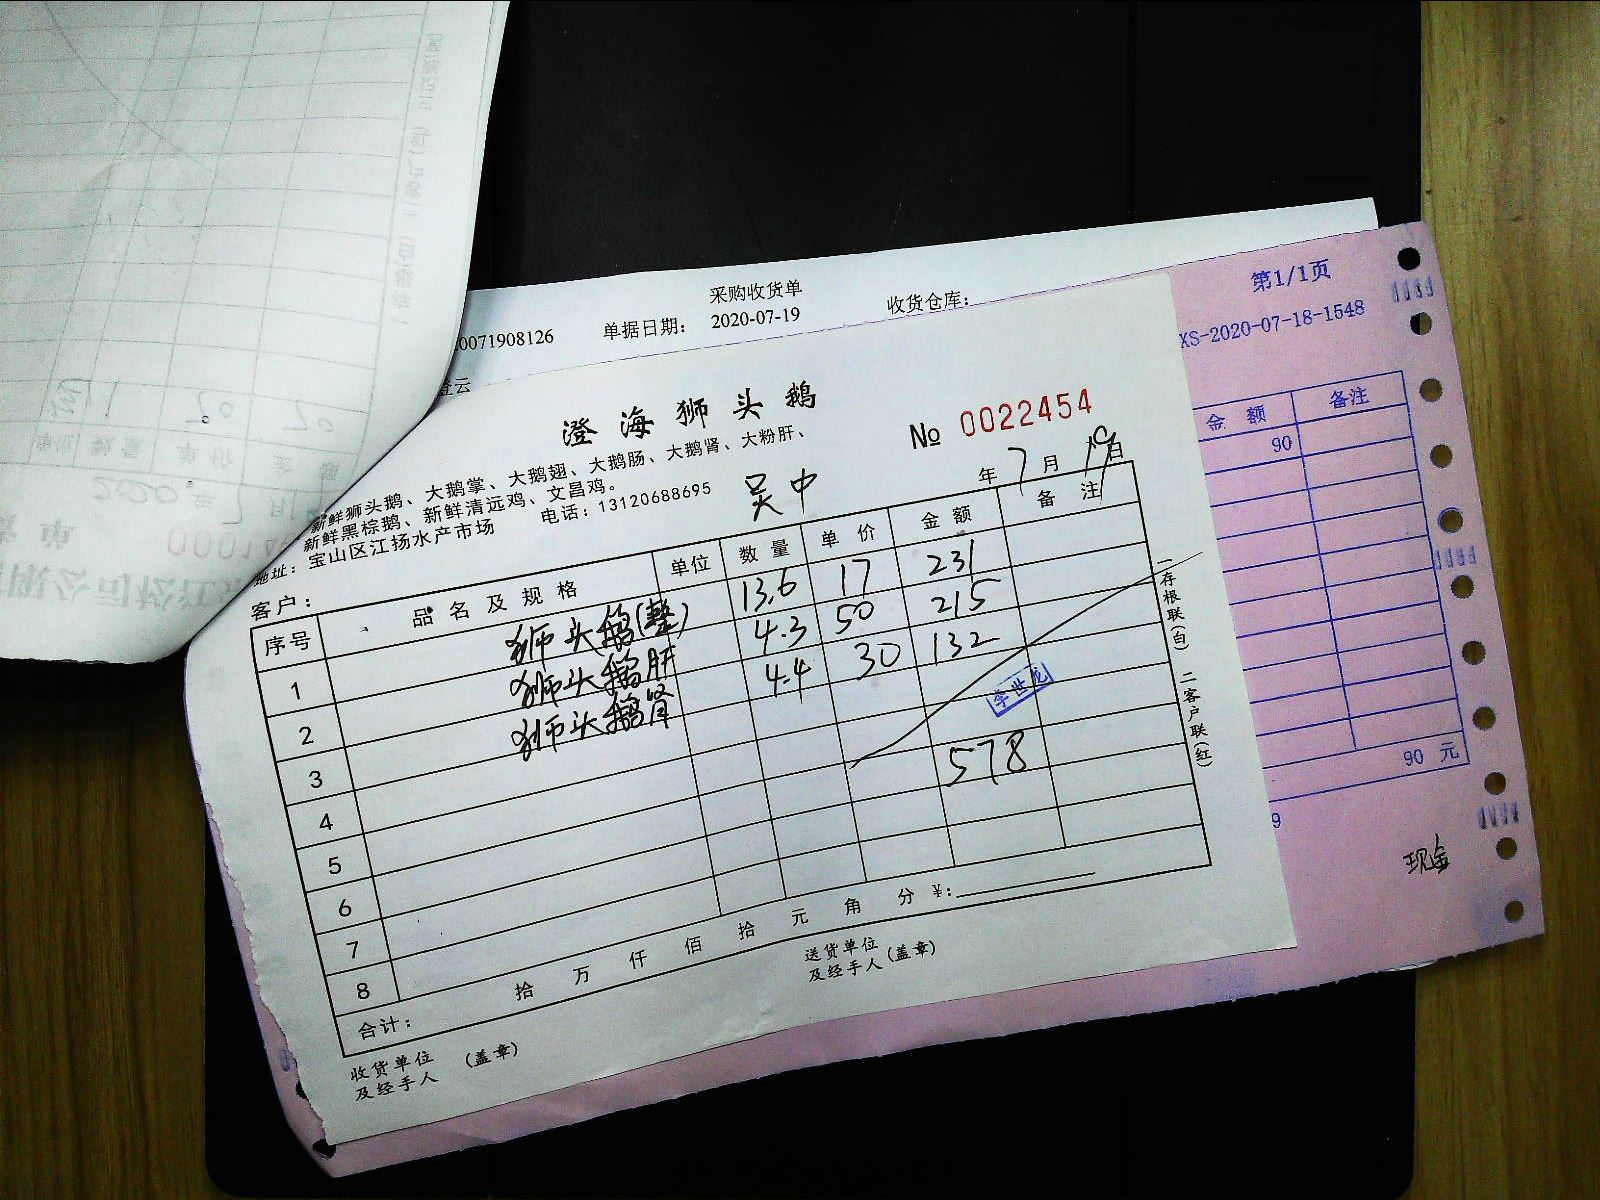 采购收货单
0071908126 单据日期: 2020-07-19 收货仓库:
登云
第1/1页
XS-2020-07-18-1548
金额 备注
90
90 元
9
现金
澄海狮头鹅
№ 0022454
新鲜狮头鹅、大鹅掌、大鹅翅、大鹅肠、大鹅肾、大粉肝、
新鲜黑棕鹅、新鲜清远鸡、文昌鸡。
地址: 宝山区江扬水产市场 电话: 13120688695
客户: 吴中 年 7 月 19 日
序号 品名及规格 单位 数量 单价 金额 备注
1 狮头鹅(整) 13.6 17 231
2 狮头鹅肝 4.3 50 215
3 狮头鹅肾 4.4 30 132
4
5
6
7
8
李世龙
578
合计: 拾 万 仟 佰 拾 元 角 分 ¥:
收货单位
及经手人 (盖章)
送货单位
及经手人(盖章)
一存根联(白) 二客户联(红)